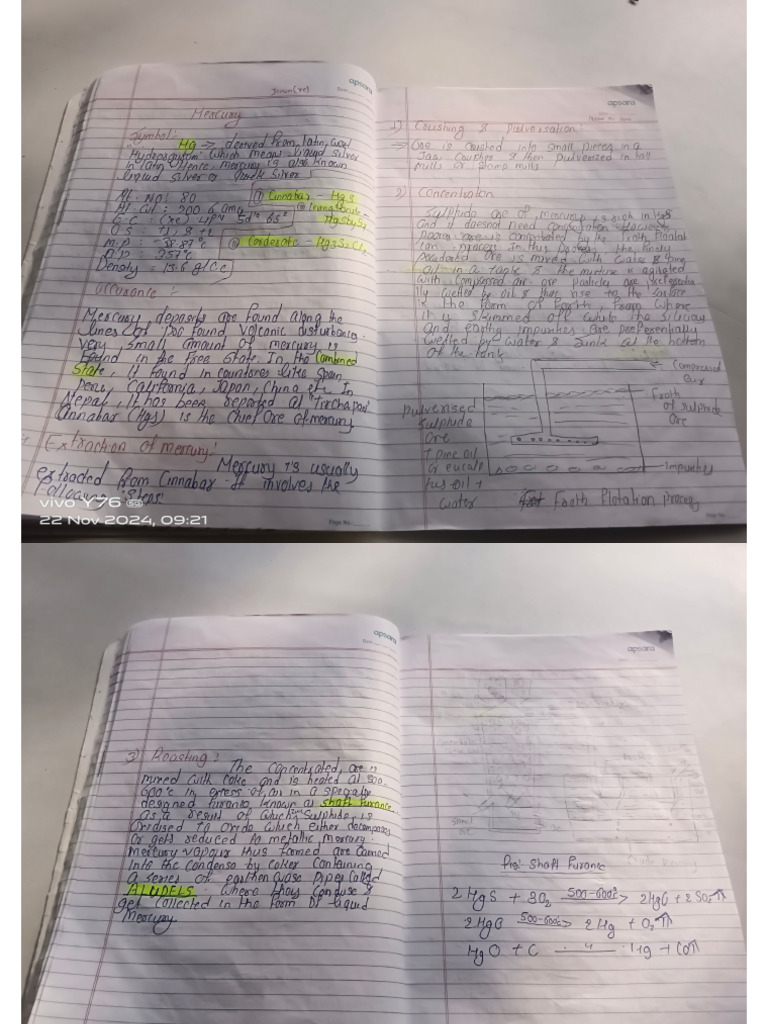 apsara
Mercury
Symbol:
Hg → derived from latin, word
Hydragyrum which means liquid silver
in latin. Hence mercury is also known
liquid silver or Quick silver
At. No: 80
① Cinnabar - HgS
At. wt: 200.6 amu
E.C: (Xe) 4f14 5d10 6s2
HgSb4S7
O.S: +1, & +1
M.P: -38.87°c
B.P: 357°c
Density = 13.6 g/Cc
Occurance:
Mercury deposits are found along the
Lines of volcanic disturbance
very small amount of mercury is
Found in the Free State. In the Combined
State, it found in countores like Spain
Peru, California, Japan, China etc. In
Nepal, it has been reported at
Cinnabar (HgS) is the Chief Ore of mercury
Extraction of mercury:
Mercury is usually
extracted from Cinnabar. It involves the
Following Steps
vivo Y76 5G
22 Nov 2024, 09:21
Page No.:
apsara
1) Crushing & pulverisation:
→ Ore is crushed into small pieces in a
Jaw Crusher & then pulverized in ball
mills or stamp mills
2) Concentration
Sulphide ore of mercury is rich in HgS
and it doesnot need concentration However
poorer ore is concentrated by the Froth Floatat
ion process In this process the finely
powdered Ore is mixed with water & pine
oil in a tank & the mixture is agitated
with compressed air ore particles are preferentia
ly wetted by oil & then rise to the surface
in the form of Froth, From where
it is skimmed off while the silicious
and earthy impurities are preferentially
wetted by water & sink at the bottom
of the tank
Compressed
air
Froth
of sulphide
Ore
pulverised
Sulphide
Ore
+ pine oil
or eucalp
tus oil +
water
Impurites
Froth Flotation process
apsara
3) Roasting:
The concentrated, ore is
mixed with coke and is heated at 500-
600°c in excess of air in a specially
designed furance known as Shaft Furance.
As a result of which, Sulphide, is
Oxidised to Oxide which either decomposes
Or gets reduced to metallic mercury.
Mercury vapour thus formed are carried
into the condense by coker Containing
a series of earthen ware pipes called
ALUDELS. Where they Conduse &
get Collected in the form of liquid
Mercury
apsara
Fig: Shaft Furance
2HgS + 3O2 500-600°c > 2HgO + 2SO2 ↑
2HgO 500-600°c > 2Hg + O2 ↑
HgO + C — " — Hg + CO↑